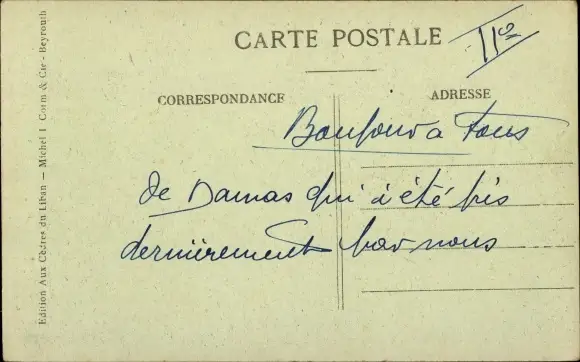 CARTE POSTALE
CORRESPONDANCE
ADRESSE
Bonjour a Tous
de Damas qui a été pis
dernièrement par nous
Edition Aux Cèdres du Liban — Michel I. Corm & Cie - Beyrouth